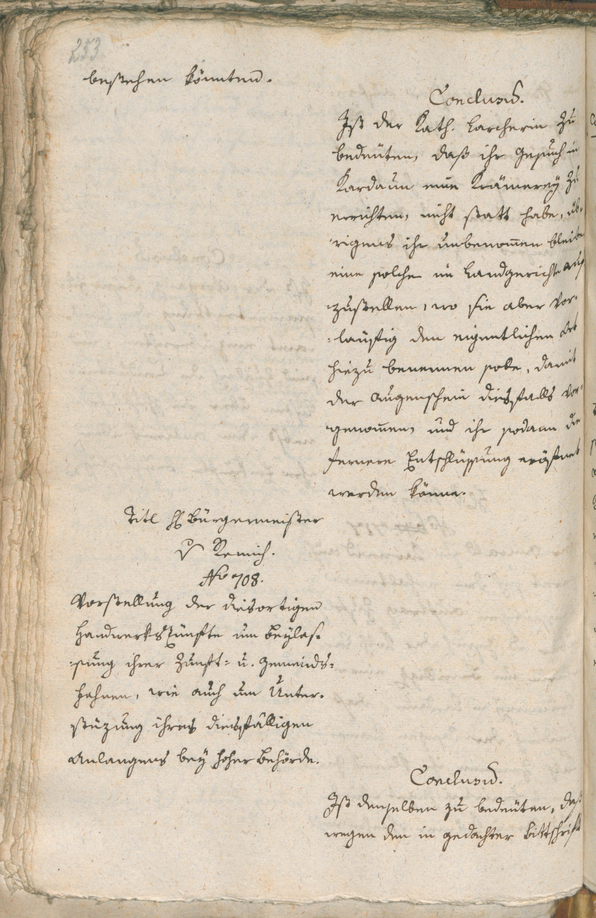 253
bestehen könnten.
Conclusũ.
Ist der Kath. Larcherin zu
bedeuten, daß ihr Gesuch in
Kardaun eine Krämerey zu
errichten, nicht statt habe, üb-
rigens ihr unbenom̅en bleibe
eine solche im Landgericht auf-
zustellen, wo sie aber vor-
läufig den eigentlichen Ort
hiezu benennen solle, damit
der Augenschein diesfalls vor-
genom̅en, und ihr sodann die
fernere Entschlüssung eröfnet
werden könne.
Titl H. Bürgermeister
v Remich.
No 708.
Vorstellung der diesortigen
Handwerkszünfte um Beylas-
sung ihrer Zunft- u. Gemeinds-
Fahnen, wie auch um Unter-
stüzung ihres diesfälligen
Anlangens bey hoher Behörde.
Conclusũ.
Ist denselben zu bedeuten, daß
wegen den in gedachter Bittschrift